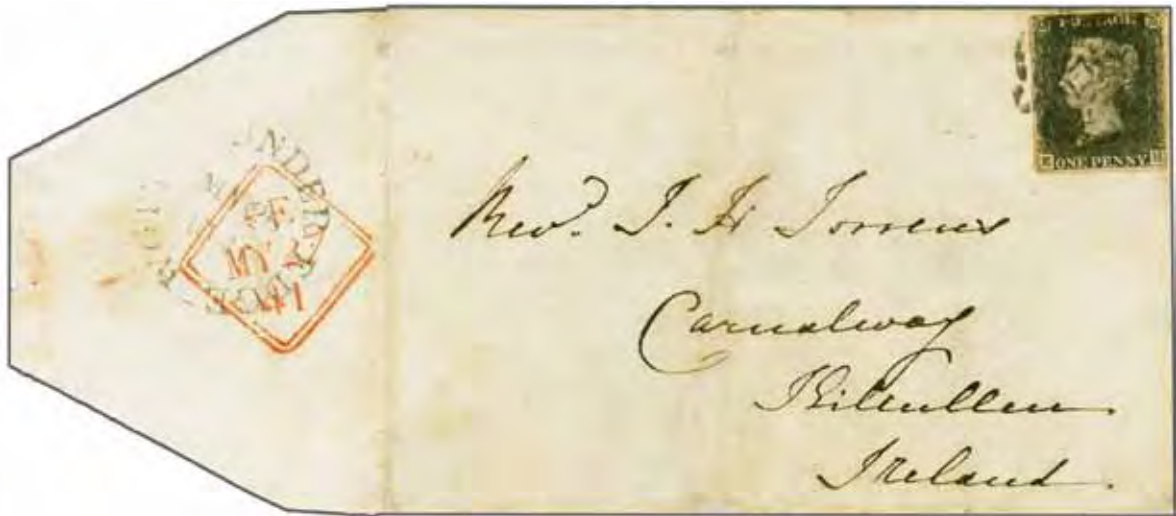 POSTAGE
ONE PENNY
Revd. J. H. Torrens
Carnalway
Kilcullen
Ireland.
MY
41